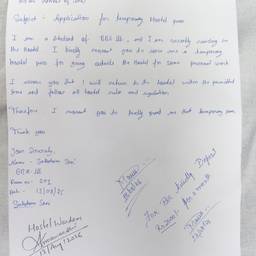 Subject - Application for temporary Hostel pass
I am a student of BBA III, and I am currently residing in
the Hostel I kindly request you to issue me a temporary
hostel pass for going outside the Hostel for some personal work
I assure you that I will return to the hostel within the permitted
time and follow all hostel rules and regulation.
Therefore I request you to kindly grant me that temporary pass.
Thank you
Your Sincerely,
Name -
BBA III
Room no - 201
Date -
Hostel Warden
12/Aug/2026
For kindly Deposit
for a month